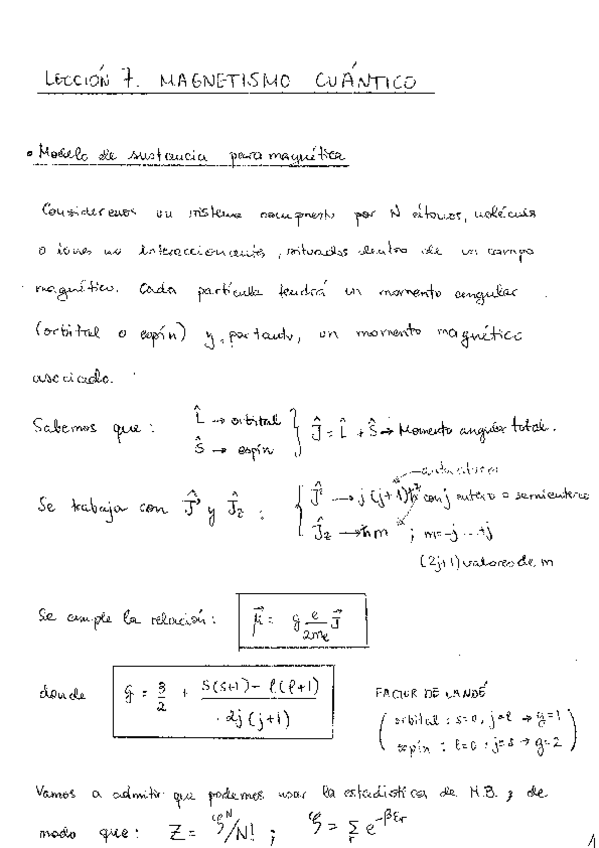 LECCIÓN 7. MAGNETISMO CUÁNTICO
• Modelo de sustancia paramagnética
Consideremos un sistema compuesto por N átomos, moléculas
o iones no interaccionantes, situados dentro de un campo
magnético. Cada partícula tendrá un momento angular
(orbital o espín) y, por tanto, un momento magnético
asociado.
Sabemos que: L̂ → orbital
Ŝ → espín } Ĵ = L̂ + Ŝ → Momento angular total.
autovalores
Se trabaja con Ĵ² y Ĵz : { Ĵ² → j(j+1)ħ² con j entero o semientero
Ĵz → ħm ; m=-j...+j
(2j+1) valores de m
Se cumple la relación: μ⃗ = g e/2me J⃗
donde g = 3/2 + (s(s+1) - l(l+1))/2j(j+1)
FACTOR DE LANDÉ
(orbital : s=0, j=l → g=1
espín : l=0 : j=s → g=2)
Vamos a admitir que podemos usar la estadística de M.B. y de
modo que: Z = 𝒵^N/N! ; 𝒵 = Σr e^-βεr
1